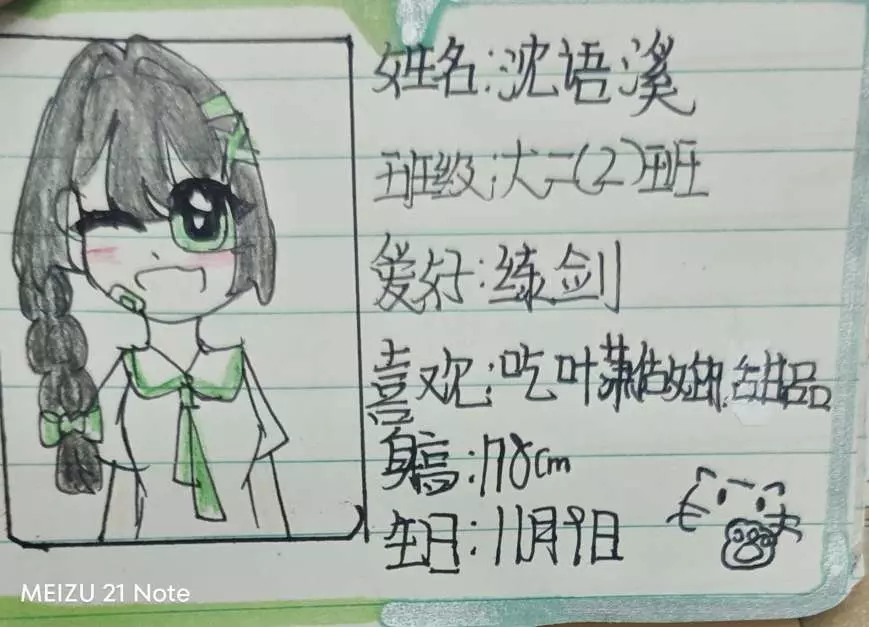 姓名:沈语溪
班级:大二(2)班
爱好:练剣
喜欢:吃叶萧做的甜品
身高:178cm
生日:11月9日
MEIZU 21 Note